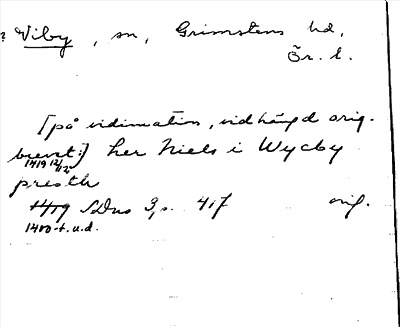 ? Viby, sn, Grimstens hd,
Ör. l.
[på vidimation, vidhängd orig.
brevet:] her Niels i Wycby
1419 12/12
presth
1419 SDns 3, s. 417 orig.
1400-t. u.d.